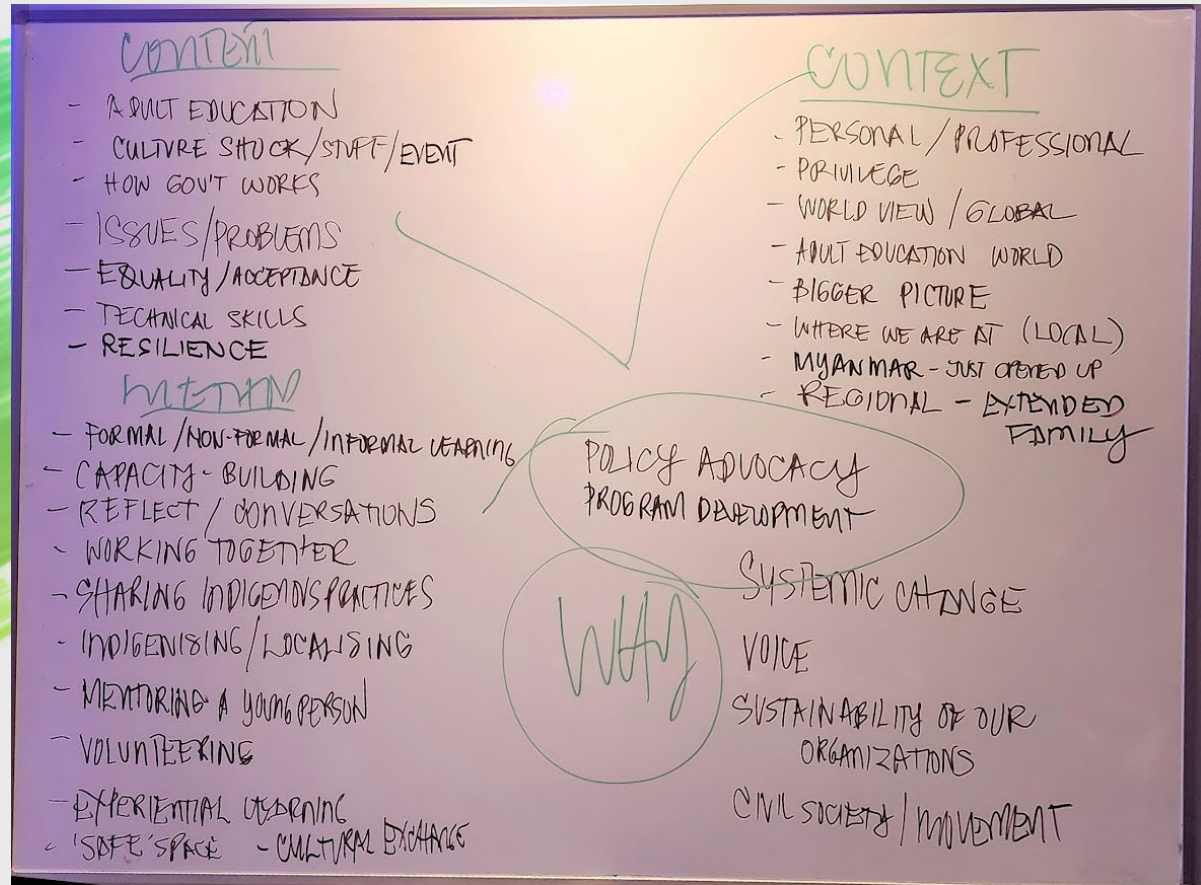 CONTENT
- ADULT EDUCATION
- CULTURE SHOCK/STUFF/EVENT
- HOW GOV'T WORKS
- ISSUES/PROBLEMS
- EQUALITY/ACCEPTANCE
- TECHNICAL SKILLS
- RESILIENCE
METHOD
- FORMAL/NON-FORMAL/INFORMAL LEARNING
- CAPACITY-BUILDING
- REFLECT/CONVERSATIONS
- WORKING TOGETHER
- SHARING INDIGENOUS PRACTICES
- INDIGENISING/LOCALISING
- MENTORING A YOUNG PERSON
- VOLUNTEERING
- EXPERIENTIAL LEARNING
- 'SAFE' SPACE - CULTURAL EXCHANGE
CONTEXT
- PERSONAL/PROFESSIONAL
- PRIVILEGE
- WORLD VIEW/GLOBAL
- ADULT EDUCATION WORLD
- BIGGER PICTURE
- WHERE WE ARE AT (LOCAL)
- MYANMAR - JUST OPENED UP
- REGIONAL - EXTENDED
FAMILY
POLICY ADVOCACY
PROGRAM DEVELOPMENT
WHY
SYSTEMIC CHANGE
VOICE
SUSTAINABILITY OF OUR
ORGANIZATIONS
CIVIL SOCIETY/MOVEMENT